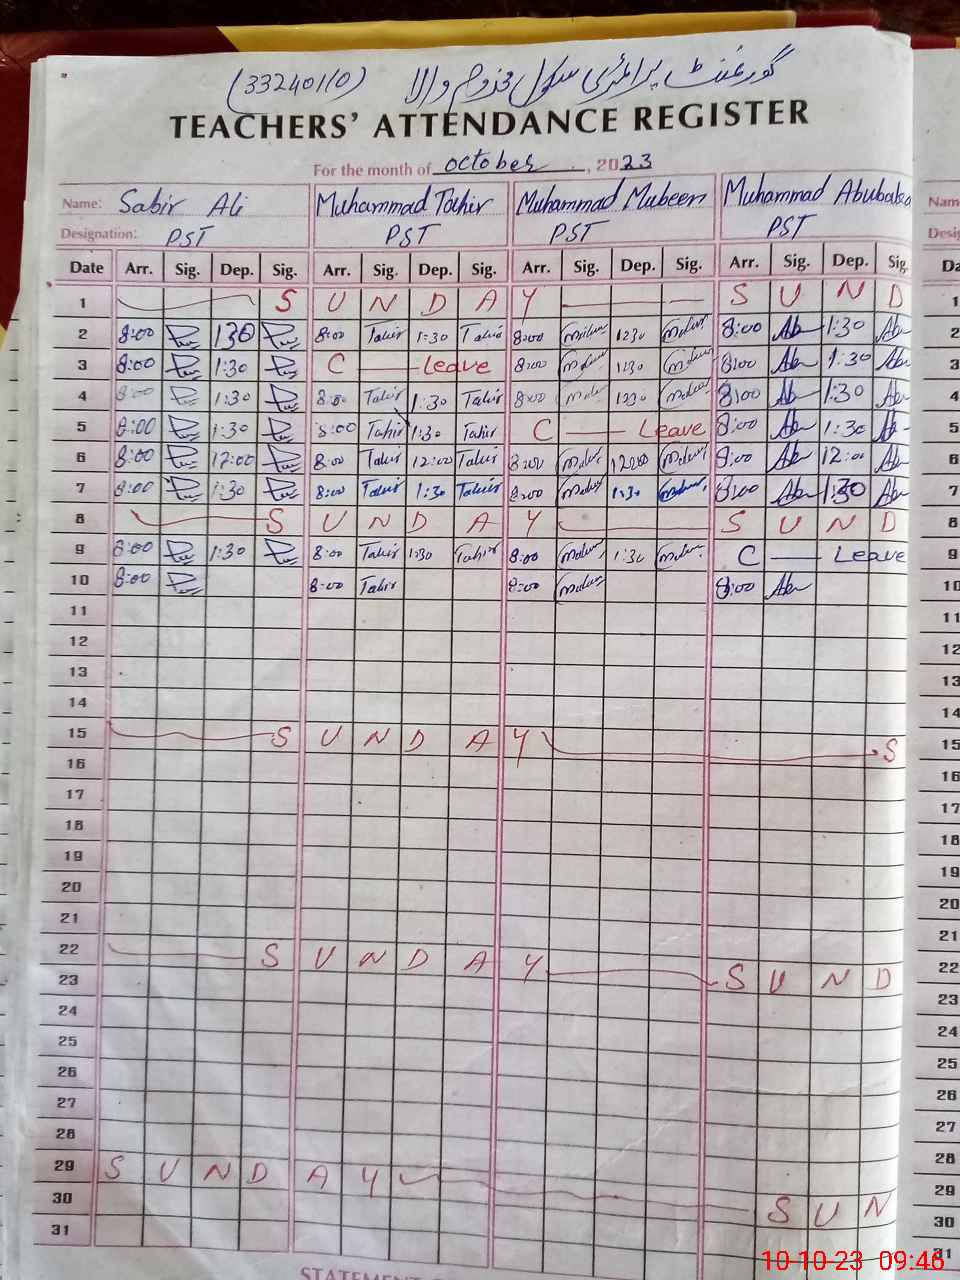 گورنمنٹ پرائمری سکول مخدوم والا (33240110)
TEACHERS' ATTENDANCE REGISTER
For the month of October, 2023
Name: Sabir Ali Muhammad Tahir Muhammad Mubeen Muhammad Abubakar
Designation: PST PST PST PST
Date Arr. Sig. Dep. Sig. Arr. Sig. Dep. Sig. Arr. Sig. Dep. Sig. Arr. Sig. Dep. Sig.
1 S U N D A Y S U N D
2 8:00 1:30 8:00 Tahir 1:30 Tahir 8:00 1:30 8:00 1:30
3 8:00 1:30 C Leave 8:00 1:30 8:00 1:30
4 8:00 1:30 8:00 Tahir 1:30 Tahir 8:00 1:30 8:00 1:30
5 8:00 1:30 8:00 Tahir 1:30 Tahir C Leave 8:00 1:30
6 8:00 12:00 8:00 Tahir 12:00 Tahir 8:00 12:00 8:00 12:00
7 8:00 1:30 8:00 Tahir 1:30 Tahir 8:00 1:30 8:00 1:30
8 S U N D A Y S U N D
9 8:00 1:30 8:00 Tahir 1:30 Tahir 8:00 1:30 C Leave
10 8:00 8:00 Tahir 8:00 8:00
11
12
13
14
15 S U N D A Y S
16
17
18
19
20
21
22 S U N D A Y S U N D
23
24
25
26
27
28
29 S U N D A Y S U N
30
31
STATEMENT
Nam
Desig
Da
1
2
3
4
5
6
7
8
9
10
11
12
13
14
15
16
17
18
19
20
21
22
23
24
25
26
27
28
29
30
31
10-10-23 09:46